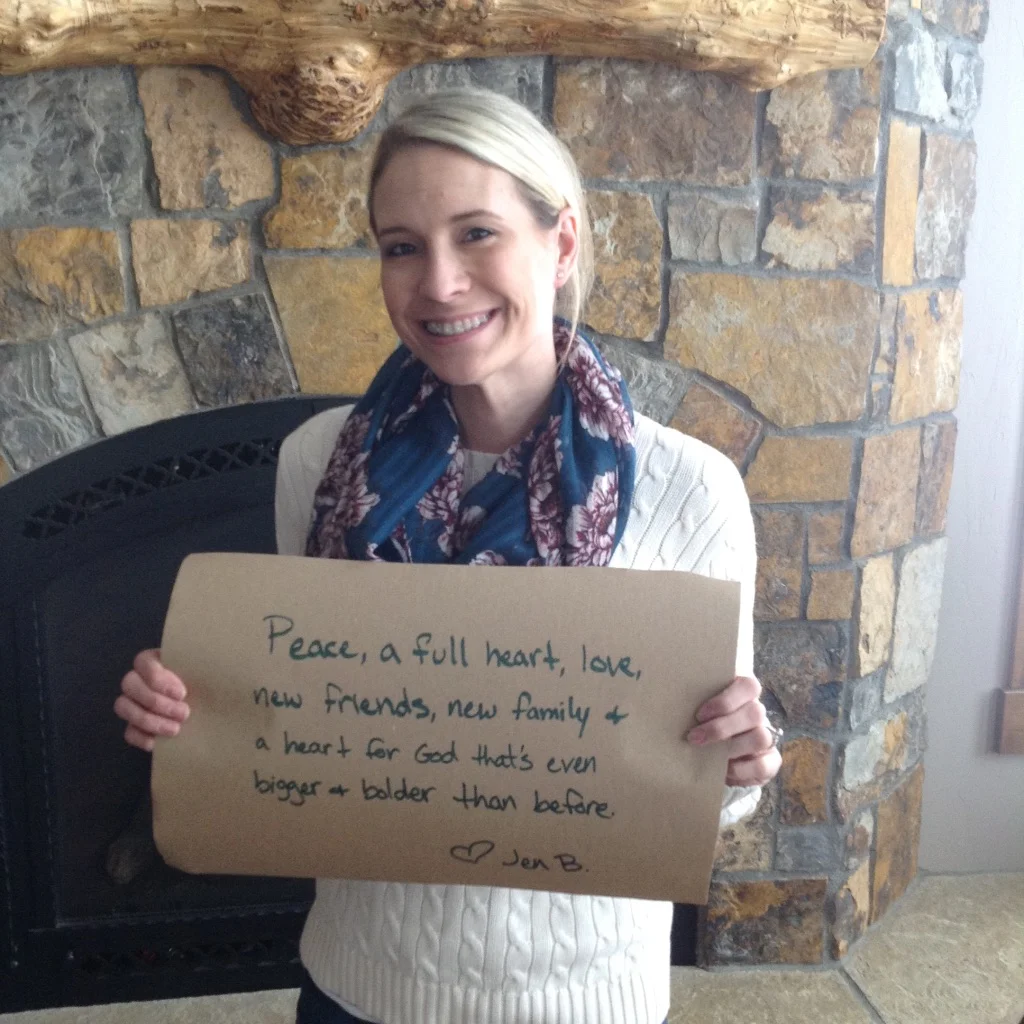 Peace, a full heart, love,
new friends, new family +
a heart for God that's even
bigger + bolder than before.
♡ Jen B.